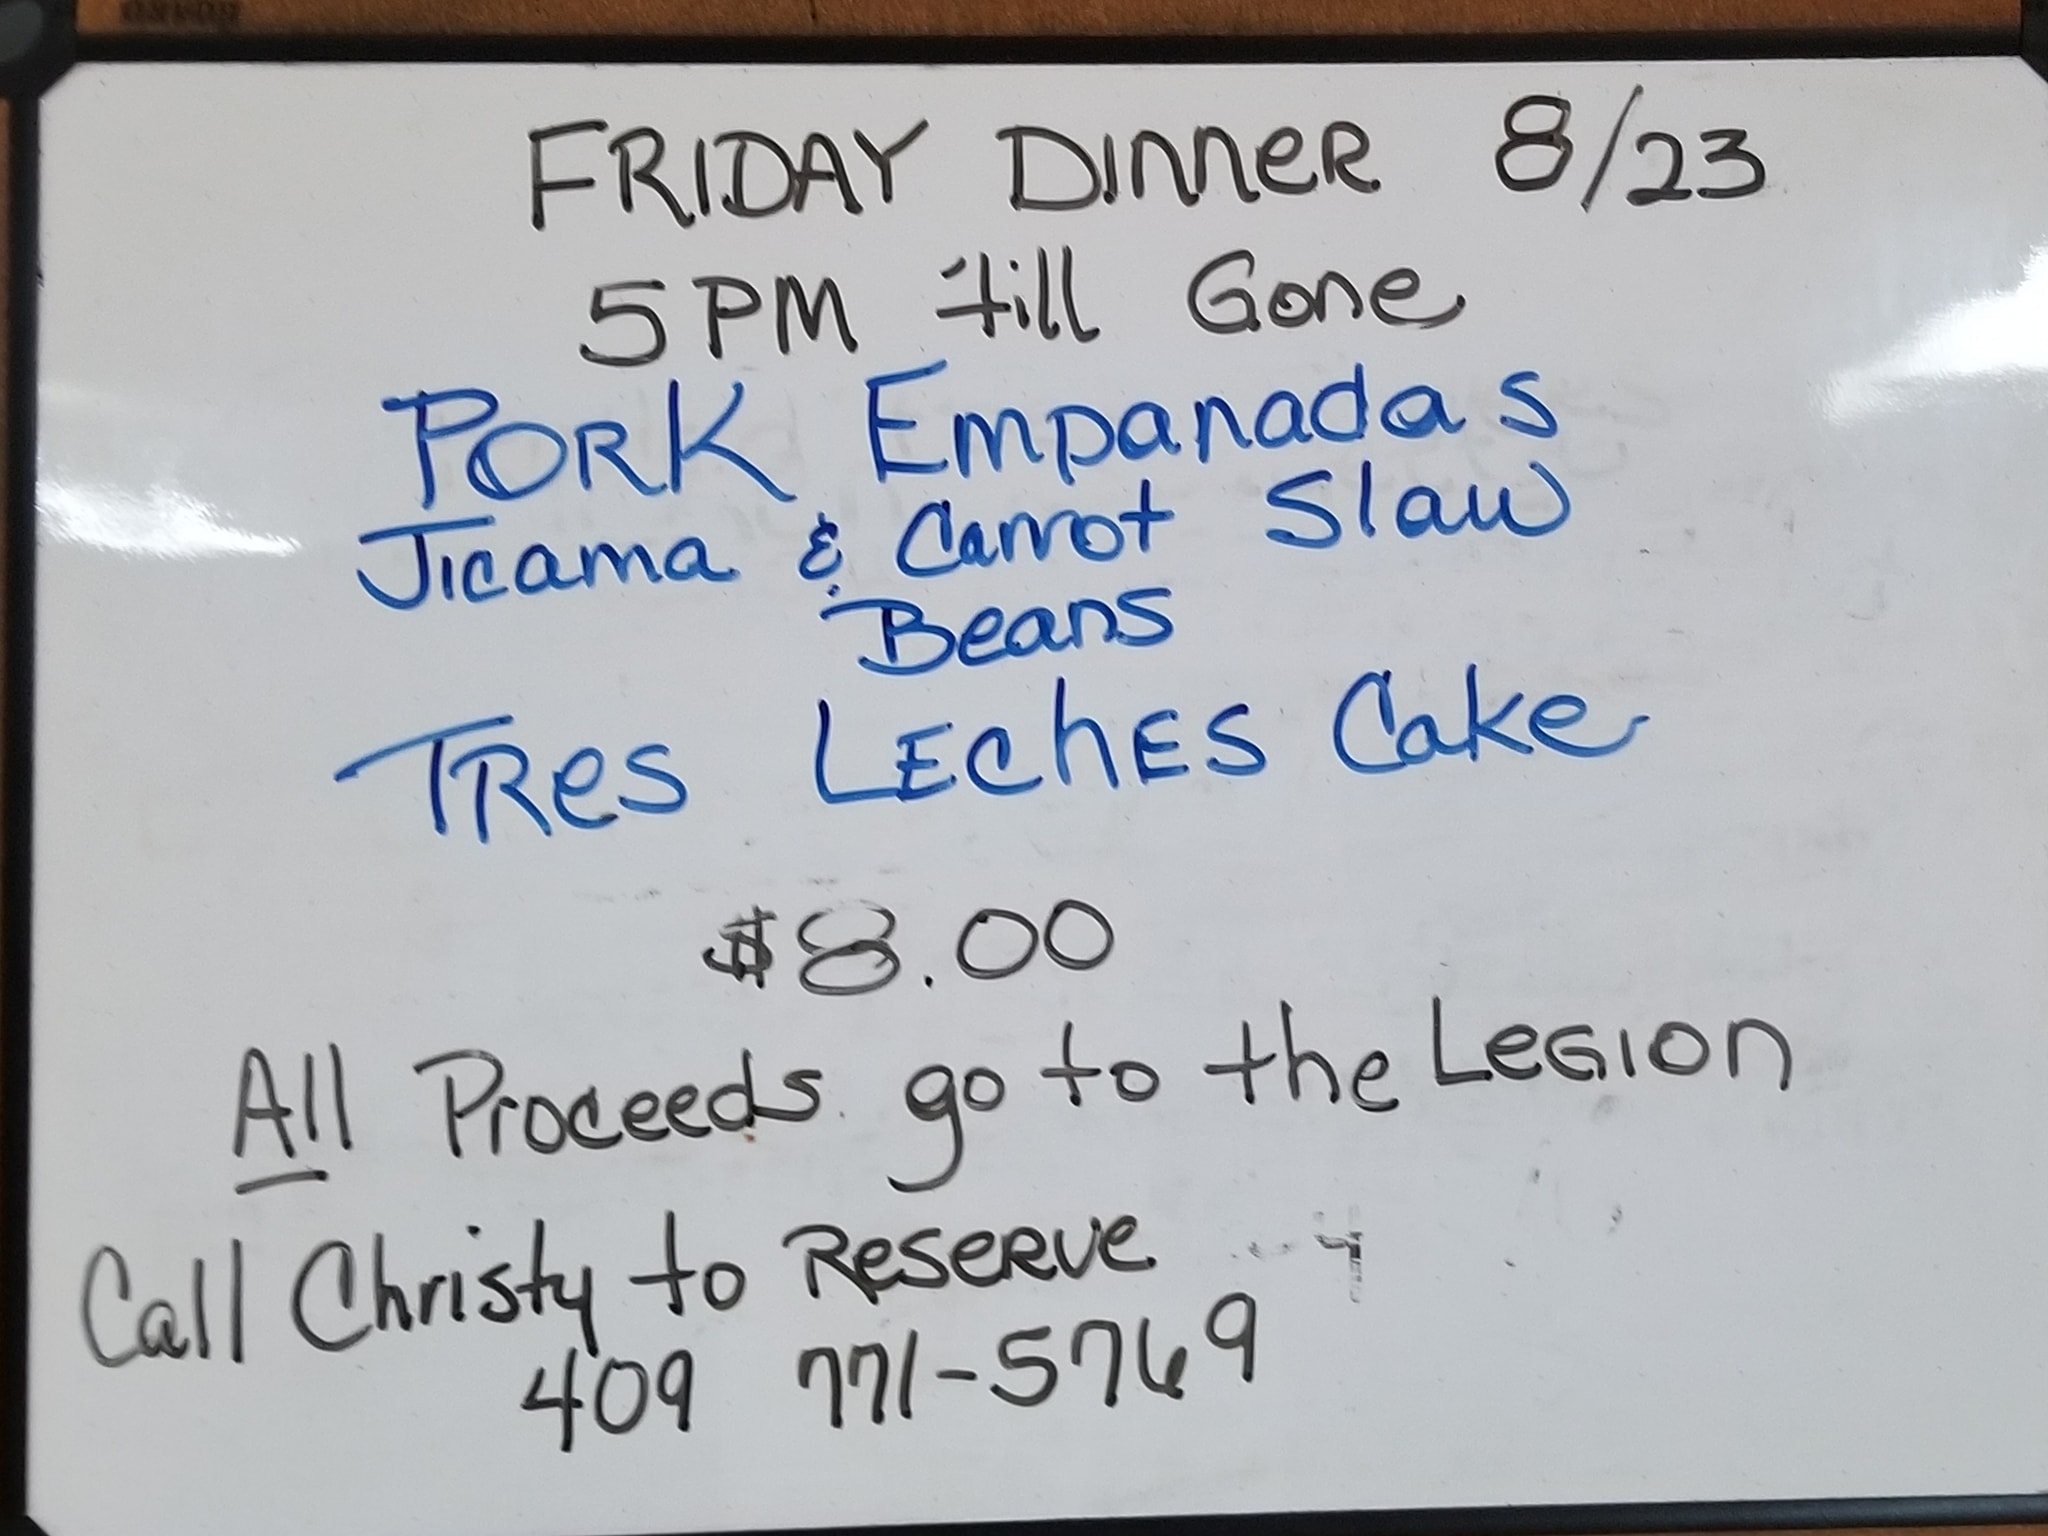 FRIDAY DINNER 8/23
5PM till Gone
PORK Empanadas
Jicama & Carrot Slaw
Beans
TRes LECHES Cake
$8.00
All Proceeds go to the LEGION
Call Christy to RESERVE
409 771-5769